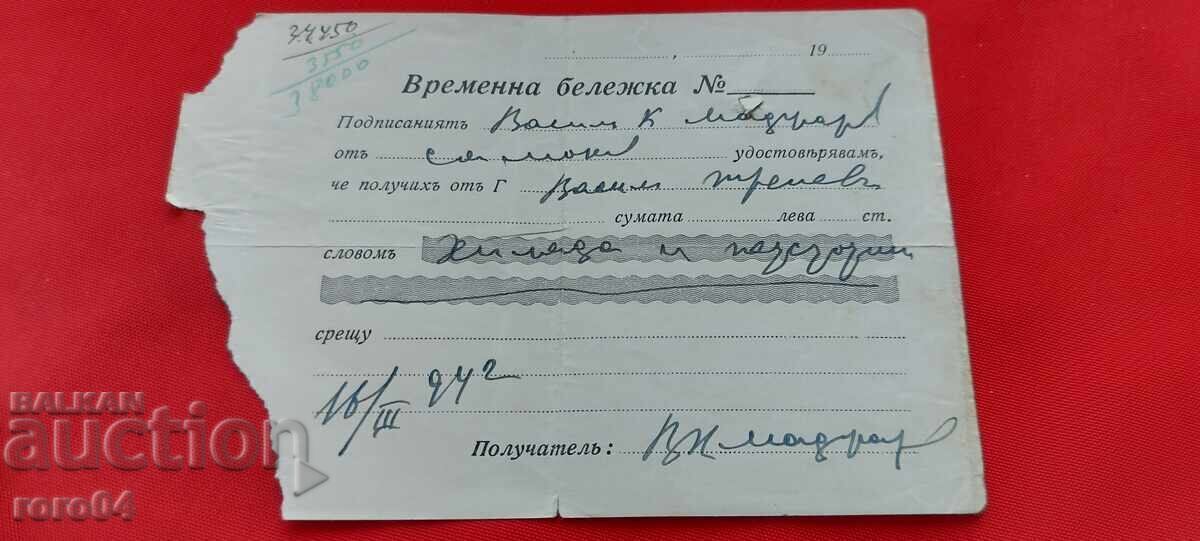 34450
3550
38000
, 19
Временна бележка №
Подписаниятъ Василъ К
отъ удостовѣрявамъ,
че получихъ отъ Г Василъ
сумата лева ст.
словомъ Хиляда и
срещу
16/III 942
Получатель: ВК
BALKAN
auction
roro04